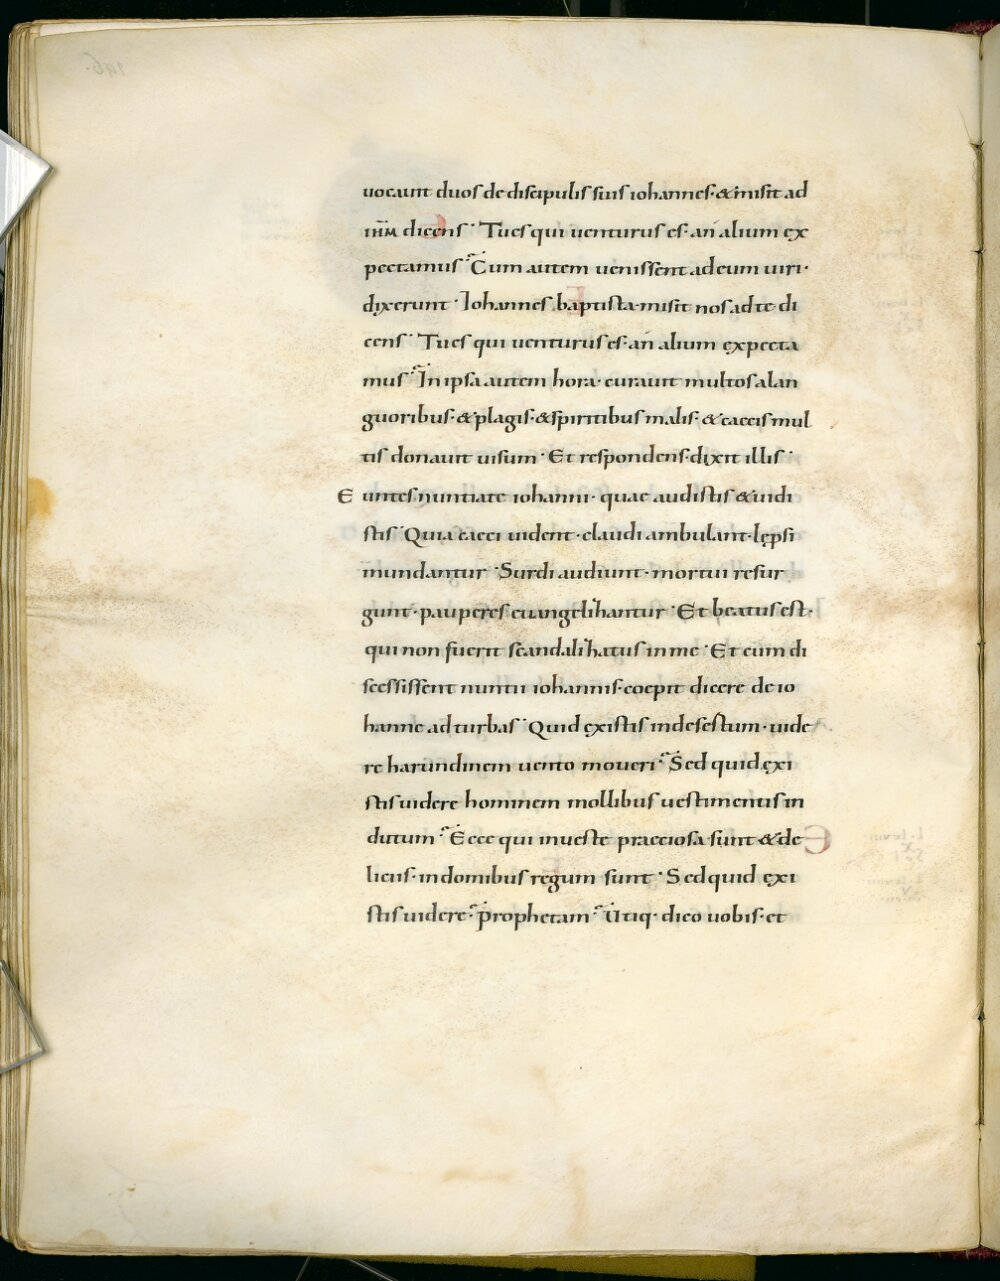 uocauit duos de discipulis suis iohannes· & misit ad
ihm̄ dicens· Tu es qui uenturus es· an alium ex
pectamus? Cum autem uenissent ad eum uiri·
dixerunt· Iohannes baptista· misit nos ad te di
cens· Tu es qui uenturus es· an alium expecta
mus? In ipsa autem hora· curauit multos a lan
guoribus· & plagis· & spiritibus malis· & caecis mul
tis donauit uisum· Et respondens· dixit illis·
Euntes nuntiate iohanni· quae audistis & uidi
stis· Quia caeci uident· claudi ambulant· lepsi
mundantur· Surdi audiunt· mortui resur
gunt· pauperes euangelizantur· Et beatus est·
qui non fuerit scandalizatus in me· Et cum di
scessissent nuntii iohannis· coepit dicere de io
hanne ad turbas· Quid existis in desertum· uide
re harundinem uento moueri? Sed quid exi
stis uidere hominem mollibus uestimentis in
dutum? Ecce qui in ueste praeciosa sunt & de
liciis· in domibus regum sunt· Sed quid exi
stis uidere? prophetam? Utiq· dico uobis· et